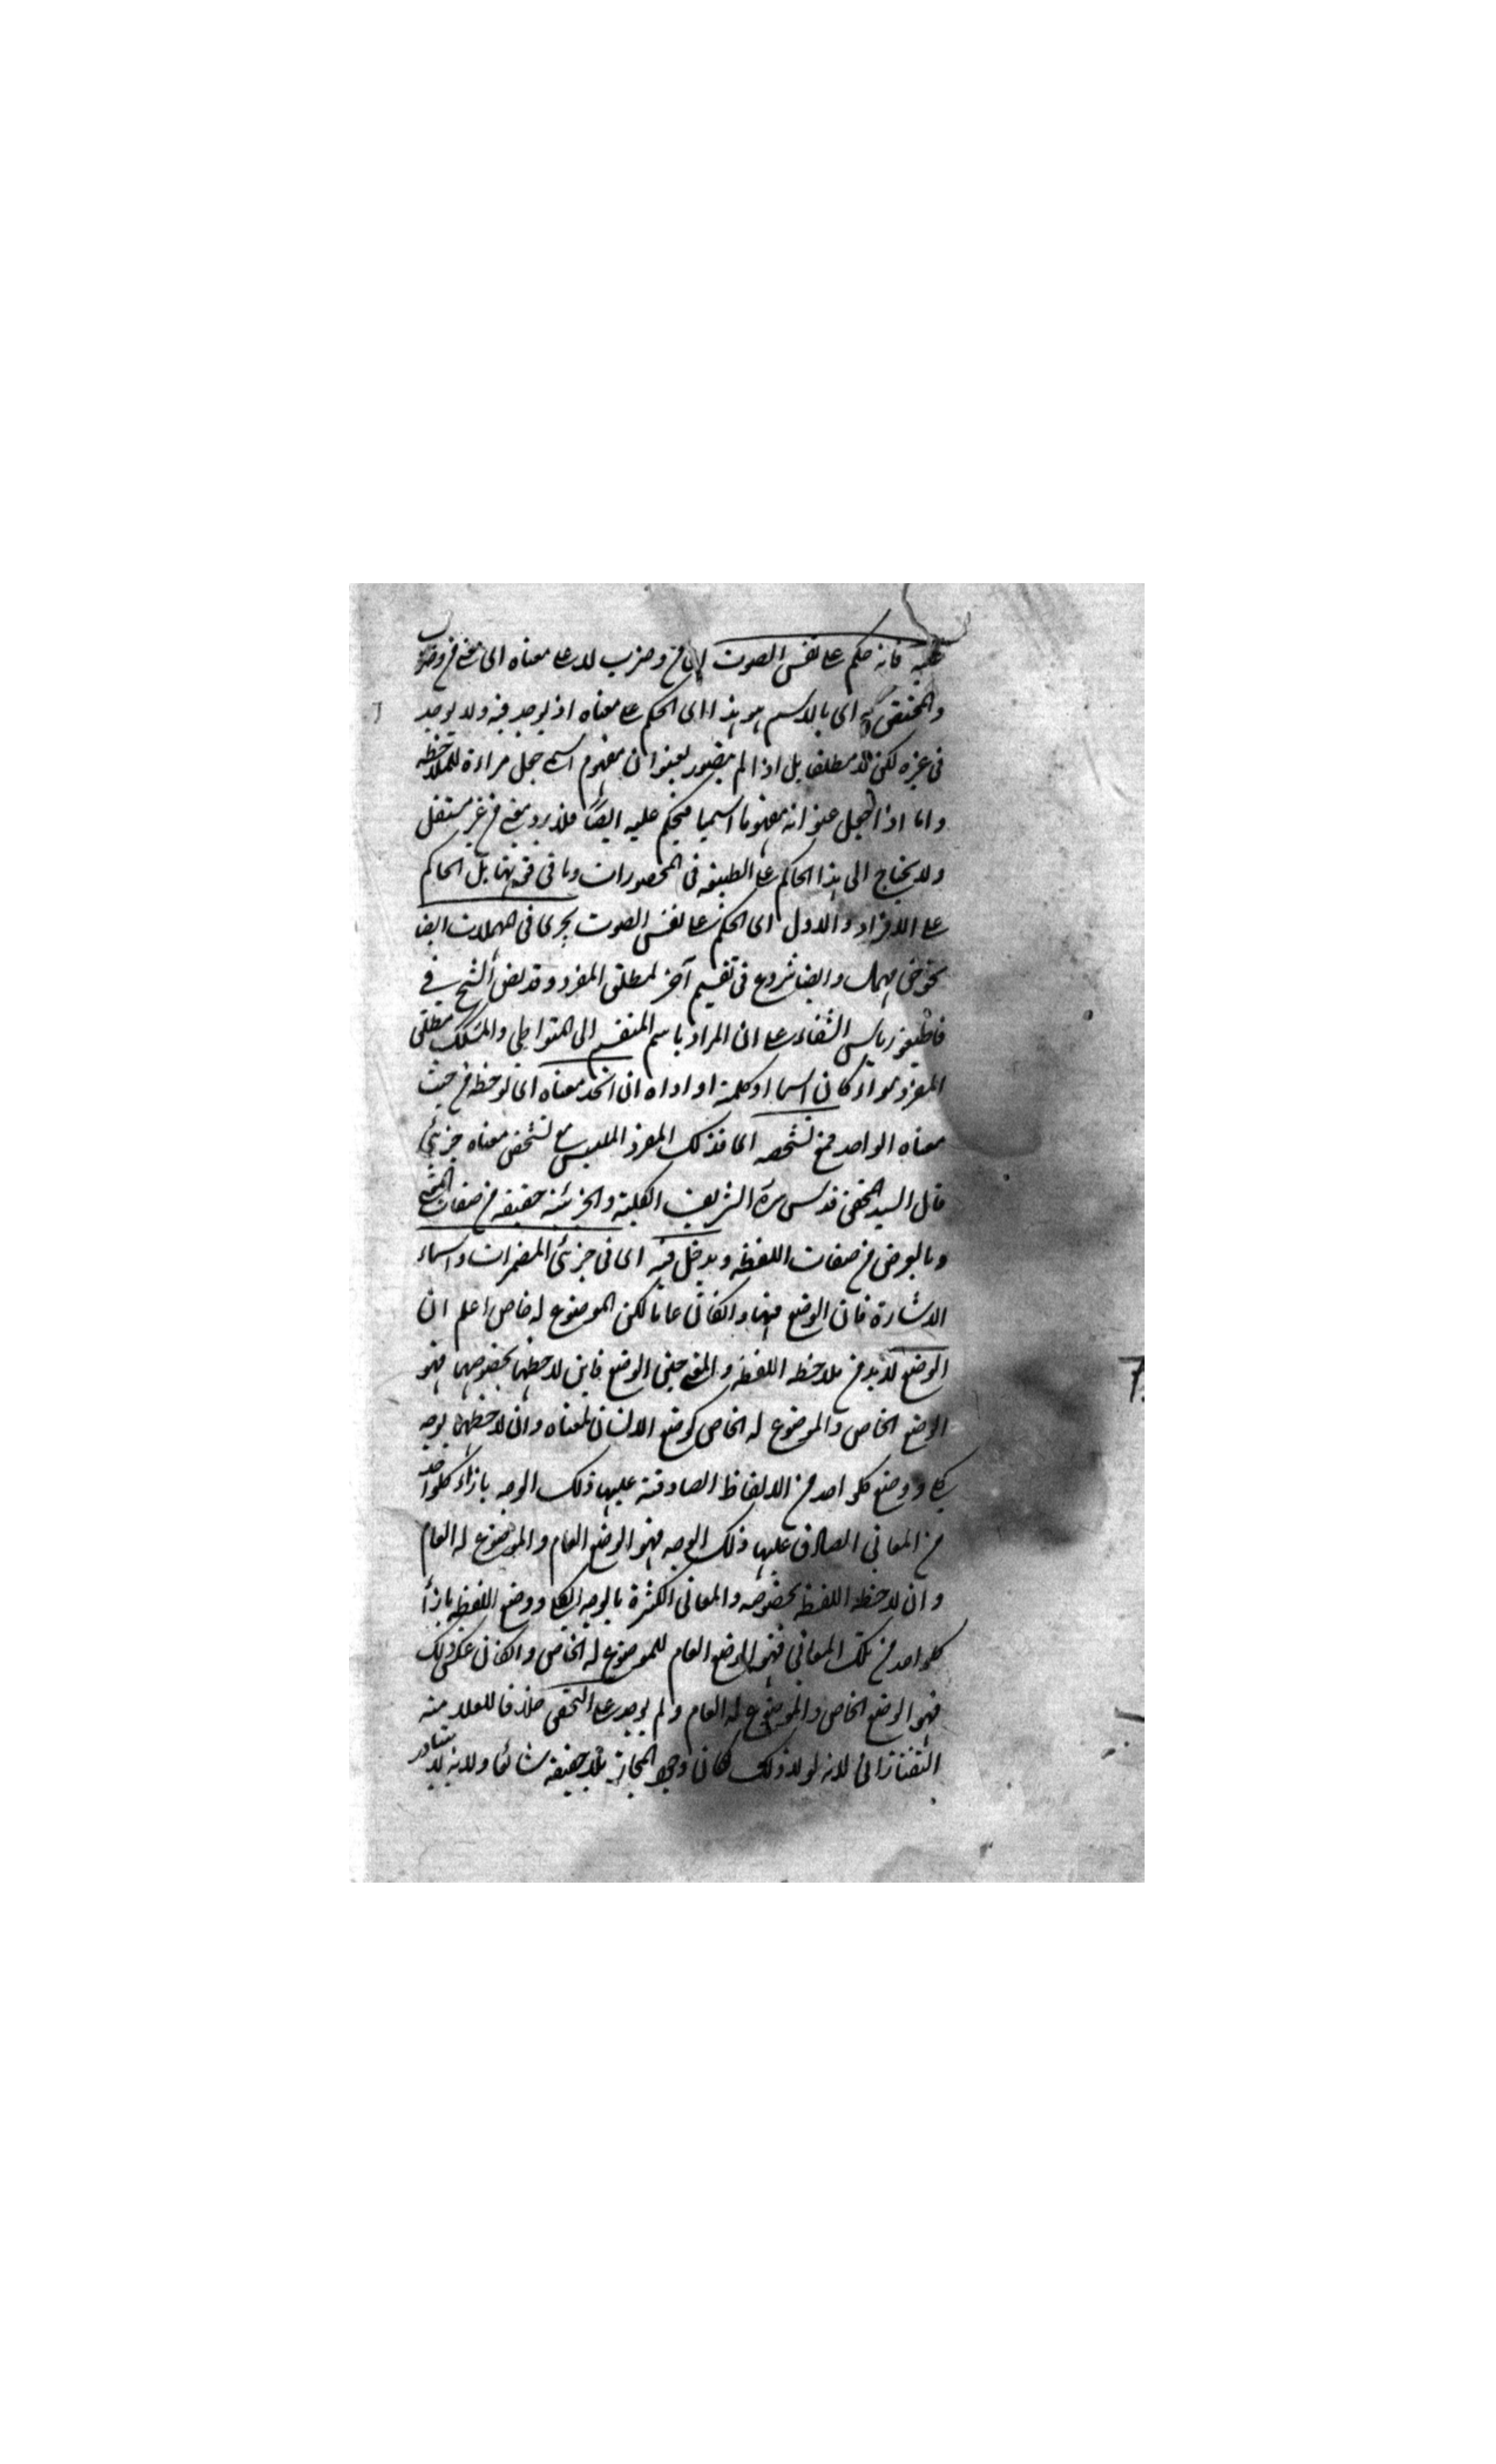 عليه فانه حكم على نفس الصوت لا من وضرب لا على معناه اى معنى من وضرب
والمختص به اى بالاسم هو هذا اى الحكم على معناه اذ يوجد فيه ولا يوجد
فى غيره لكن لا مطلقا بل اذا لم يتصور بعنوان مفهوم اسمى جعل مراءة للملاحظة
واما اذا جعل عنوانه مفهوما اسميا فيحكم عليه ايضا فلا يرد معنى من غير مستقل
ولا يحتاج الى هذا الحاكم على الطبيعة فى المحصورات وما فى قوتها بل الحاكم
على الافراد والاول اى الحكم على نفس الصوت يجرى فى المهملات ايضا
نحو جسق مهمل وايضا شروع فى تقسيم آخر لمطلق المفرد وقد نص الشيخ فى
قاطيغورياس الشفاء على ان المراد باسم المنقسم الى المتواطى والمشكك مطلق
المفرد سواء كان اسما او كلمة او اداة ان اتحد معناه اى لوحظ من حيث
معناه الواحد فمع تشخصه اى فذلك المفرد الملبس مع تشخص معناه جزئى
قال السيد المحقق قدس سره الشريف الكلية والجزئية حقيقة من صفات المعنى
وبالعرض من صفات اللفظ ويدخل فيه اى فى جزئى المضمرات واسماء
الاشارة فان الوضع فيها وان كان عاما لكن الموضوع له خاص اعلم ان
الوضع لا بد من ملاحظة اللفظ والمعنى حين الوضع فان لاحظهما بخصوصهما فهو
الوضع الخاص والموضوع له الخاص كوضع الانسان لمعناه وان لاحظهما بوجه
كلى ووضع كل واحد من الالفاظ الصادقة عليها ذلك الوجه بازاء كل واحد
من المعانى الصادق عليها ذلك الوجه فهو الوضع العام والموضوع له العام
وان لاحظ اللفظ بخصوصه والمعانى الكثيرة بالوجه الكلى ووضع اللفظ بازا
كل واحد من تلك المعانى فهو الوضع العام للموضوع له الخاص وان كان عكس ذلك
فهو الوضع الخاص والموضوع له العام ولم يوجد على التحقيق خلافا للعلامة
التفتازانى لانه لولا ذلك لكان وجود المجاز بلا حقيقة شائعا ولانه لا يتبادر